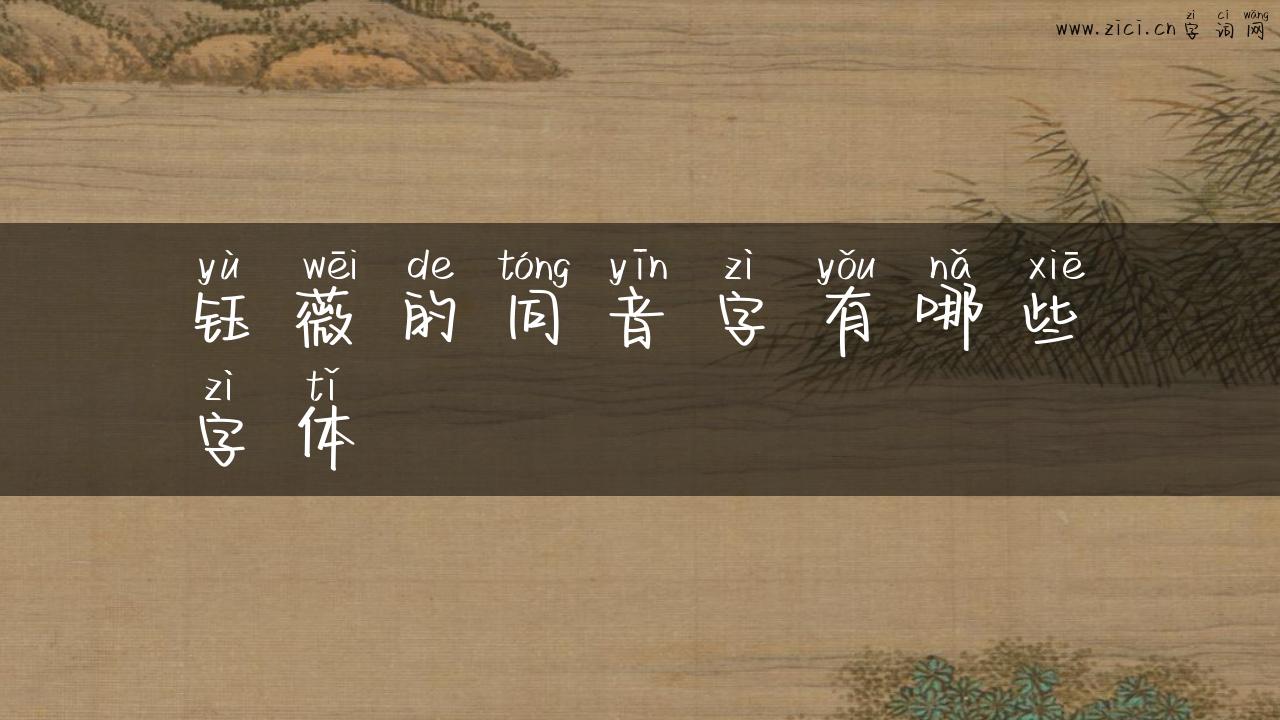 zì cí wǎng
www.zici.cn 字词网
yù wēi de tóng yīn zì yǒu nǎ xiē
钰薇的同音字有哪些
zì tǐ
字体